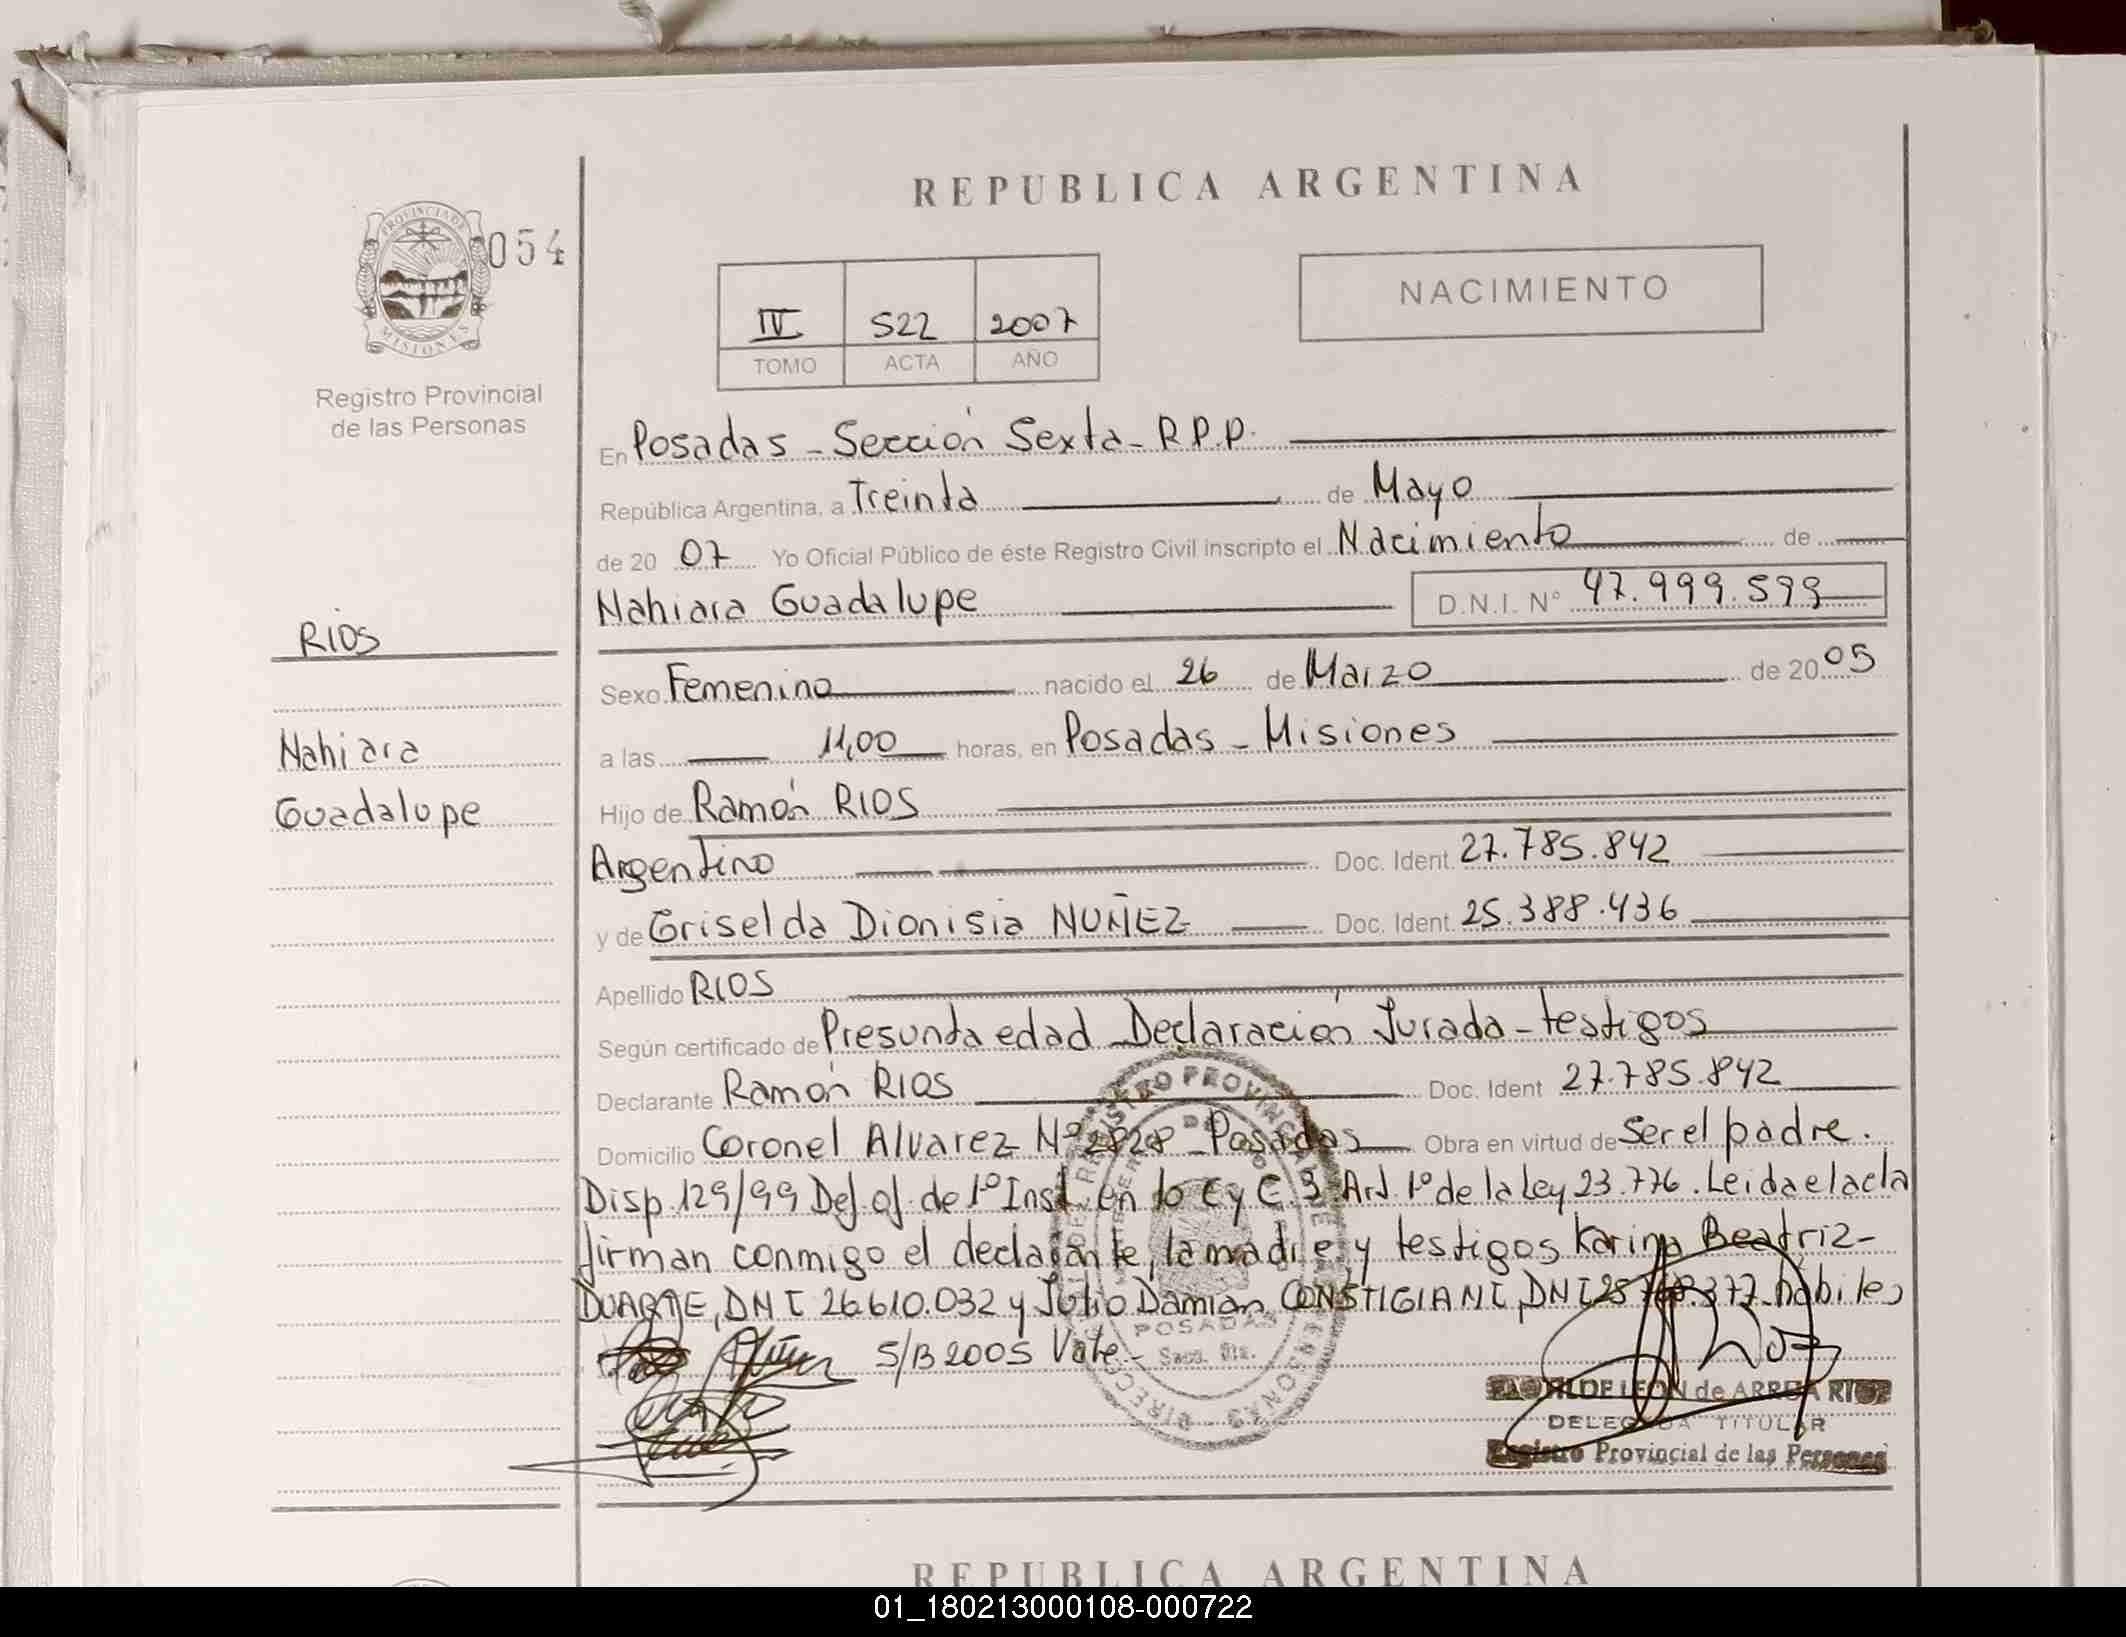 REPUBLICA ARGENTINA
PROVINCIA DE MISIONES
054
NACIMIENTO
IV 522 2007
TOMO ACTA AÑO
Registro Provincial
de las Personas
En Posadas - Sección Sexta - R.P.P.
República Argentina, a Treinta de Mayo
de 20 07 Yo Oficial Público de éste Registro Civil inscripto el Nacimiento de
Nahiara Guadalupe D.N.I. Nº 47.999.599
RIOS
Sexo Femenino nacido el 26 de Marzo de 20 05
Nahiara
a las 11,00 horas, en Posadas - Misiones
Guadalupe
Hijo de Ramón RIOS
Argentino Doc. Ident. 27.785.842
y de Griselda Dionisia NUÑEZ Doc. Ident. 25.388.436
Apellido RIOS
Según certificado de Presunta edad - Declaración Jurada - testigos
Declarante Ramón RIOS Doc. Ident 27.785.842
Domicilio Coronel Alvarez Nº 2828 - Posadas Obra en virtud de Ser el padre.
Disp. 129/99 Def. of. de 1º Inst. en lo C y C 3 Art. 1º de la Ley 23.776. Leida el acta
firman conmigo el declarante, la madre y testigos Karina Beatriz
DUARTE, DNI 26.610.032 y Julio Damian CONSTIGIANI, DNI habiles
S/B 2005 Vale.-
POSADAS
DE LEON de ARREA
DELEGADA TITULAR
Registro Provincial de las Personas
REPUBLICA ARGENTINA
01_180213000108-000722